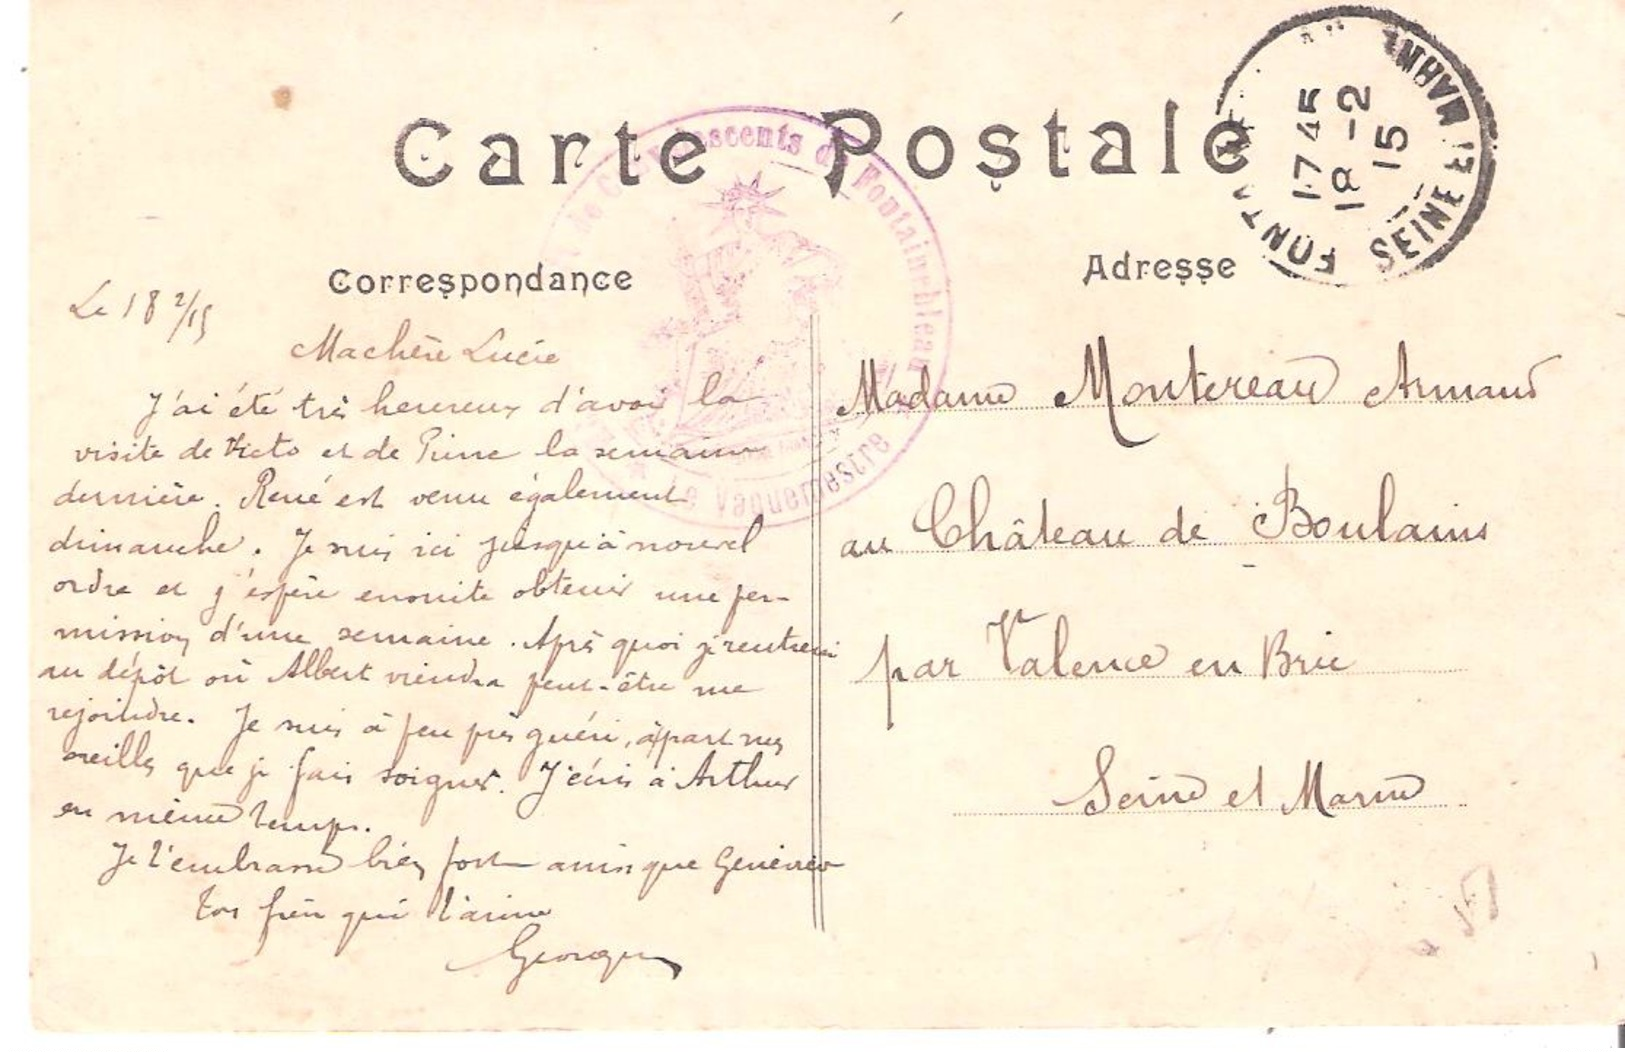 Carte Postale
Correspondance
Adresse
de Convalescents de Fontainebleau
Le Vaguemestre
FONT
SEINE ET MARNE
17 45
18 -2
15
Le 18 2/15
Machère Lucie
J'ai été très heureux d'avoir la
visite de Victo et de Pierre la semaine
dernière. René est venu également
dimanche. Je suis ici jusqu'à nouvel
ordre et j'espère ensuite obtenir une per-
mission d'une semaine. Après quoi je rentrerai
au dépôt où Albert viendra peut-être me
rejoindre. Je suis à peu près guéri, à part mes
oreilles que je fais soigner. J'écris à Arthur
en même temps.
Je t'embrasse bien fort ainsi que Geneviève
Ton frère qui t'aime
Georges
Madame Montereau Armand
au Château de Boulains
par Valence en Brie
Seine et Marne